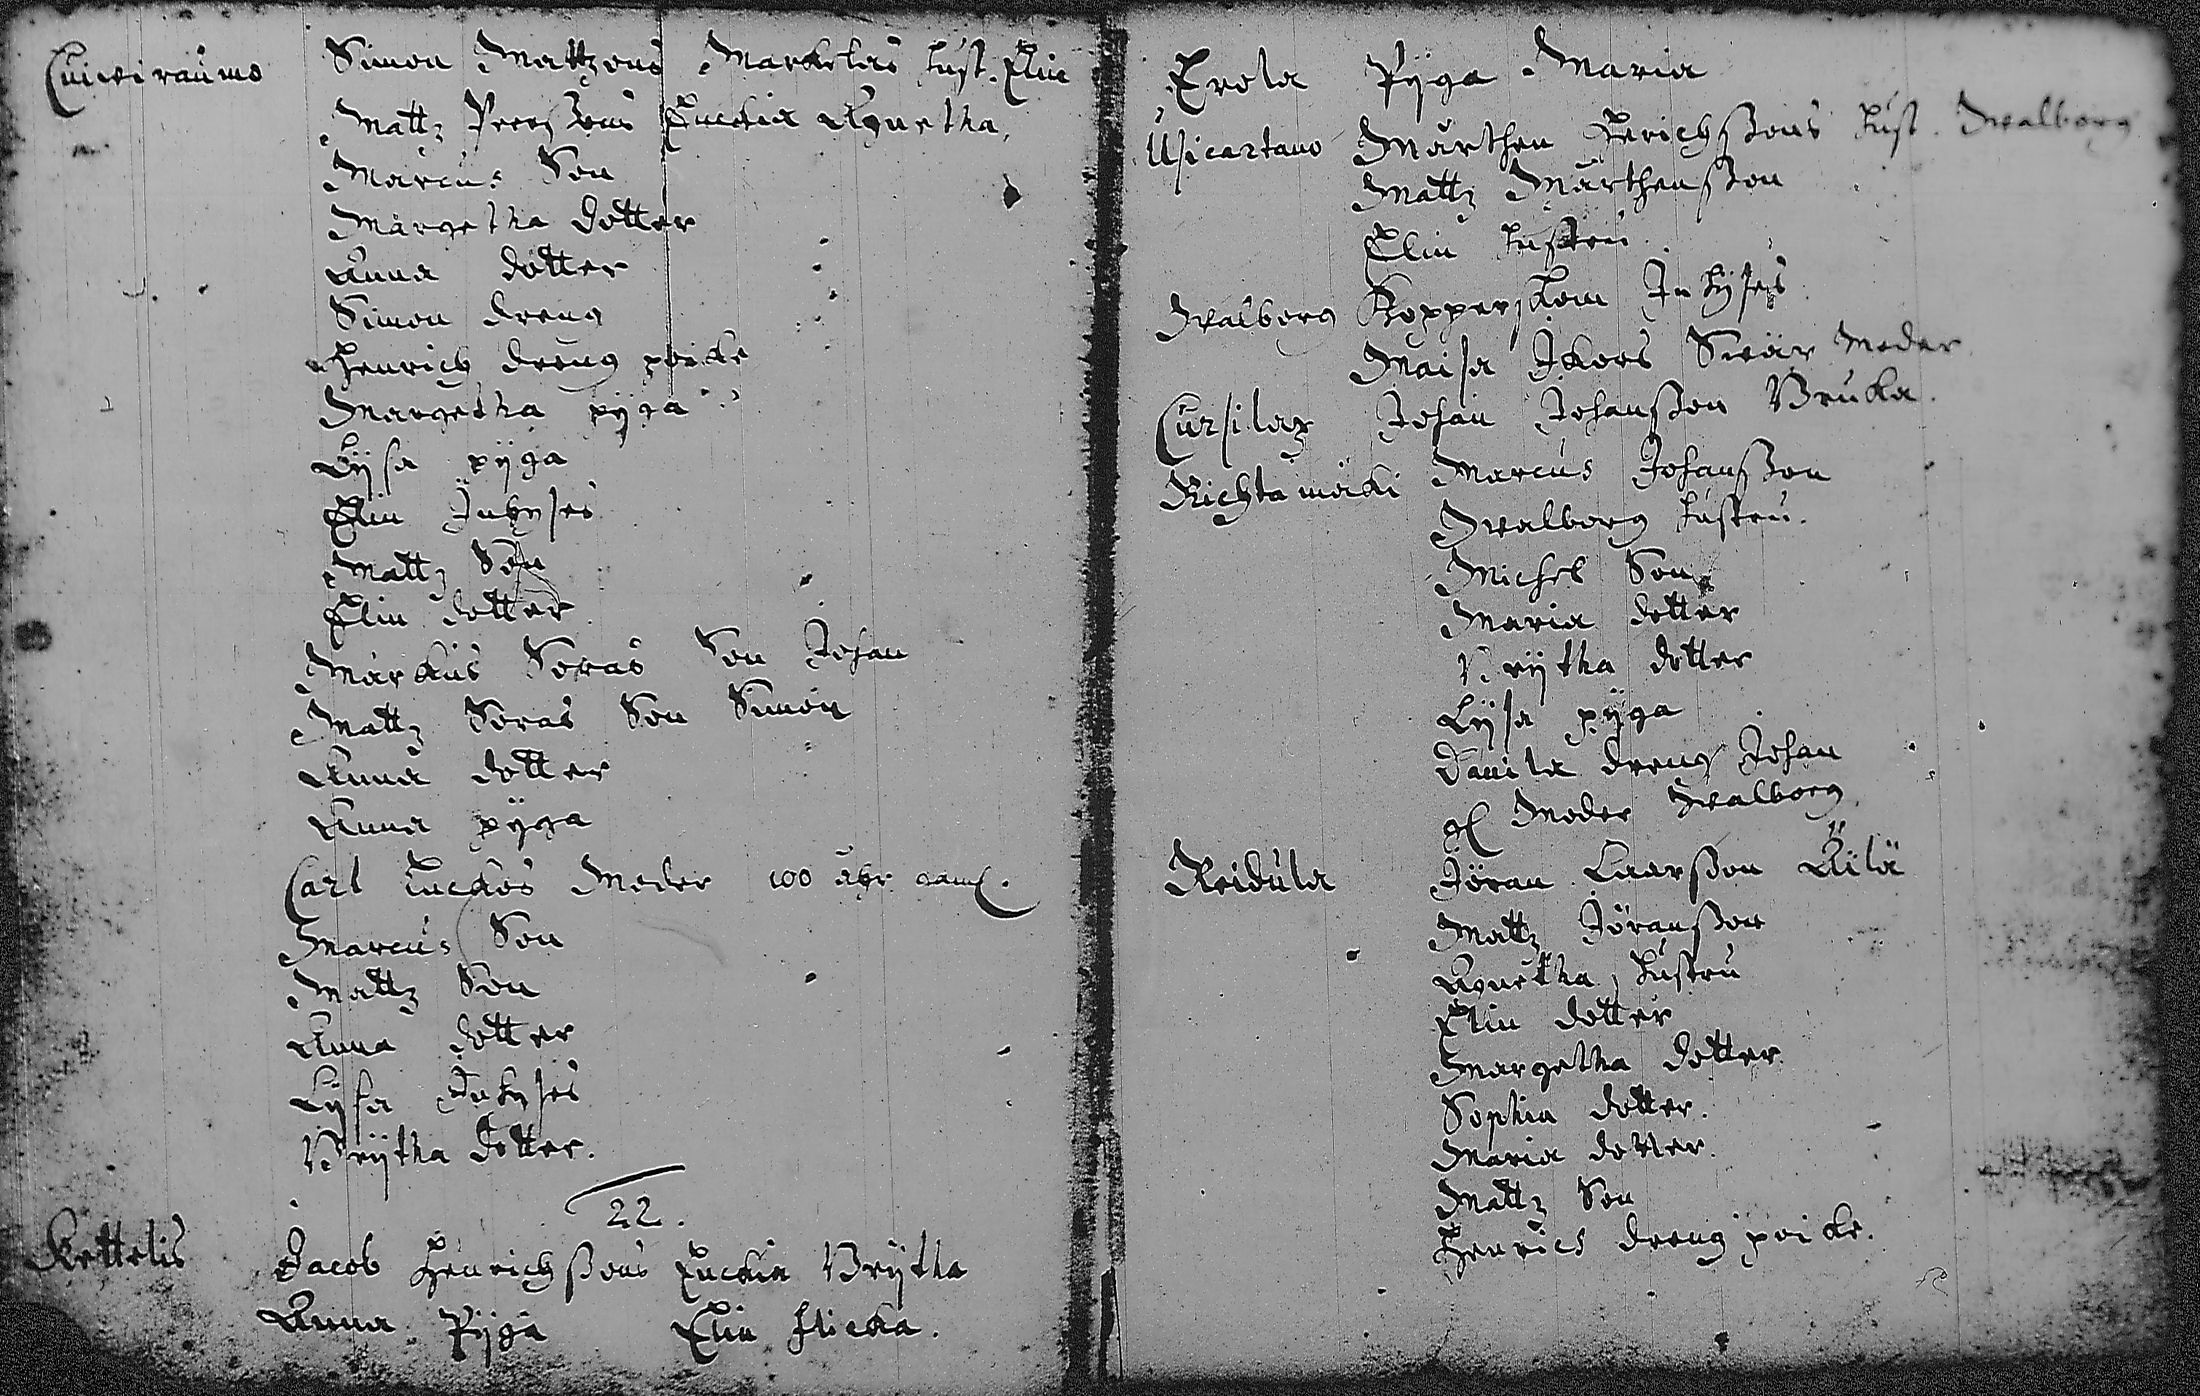 Cuiwiraumo Simon Mattzons Markelas hust. Elin
Mattz Peerssons Enckia Agnetha
Marcus Son
Margetha dotter
Anna dotter
Simon dreng
Henrich dreng poicke
Margetha pijga
Lijsa pijga
Elin Inhyses
Mattz Son
Elin dotter
Markus Soras Son Johan
Mattz Soras Son Simon
Anna dotter
Anna pijga
Carl Moder 100 åhr gaml.
Marcus Son
Mattz Son
Anna dotter
Lijsa Inhyses
Brijtha dotter.
22.
Kettelis Jacob Henrichssons Enckia Brijtha
Anna Pijga Elin flicka.
Erola Pijga Maria
Usicartano Mårthen Herichssons hust. Walborg
Mattz Mårthensson
Elin hustru
Walborg Inhyses
Maisa Swär Moder
Johan Johansson Bruka.
Richtamäki Marcus Johansson
Walborg hustru.
Michel Son
Maria dotter
Brijtha dotter
Lijsa pijga
Danila dreng Johan
gl Moder Walborg
Reidula Jöran Larsson Äilä
Mattz Jöransson
Agnetha hustru
Elin dotter
Margetha dotter
Sophia dotter.
Maria dotter.
Mattz Son
Henrich dreng poicke.